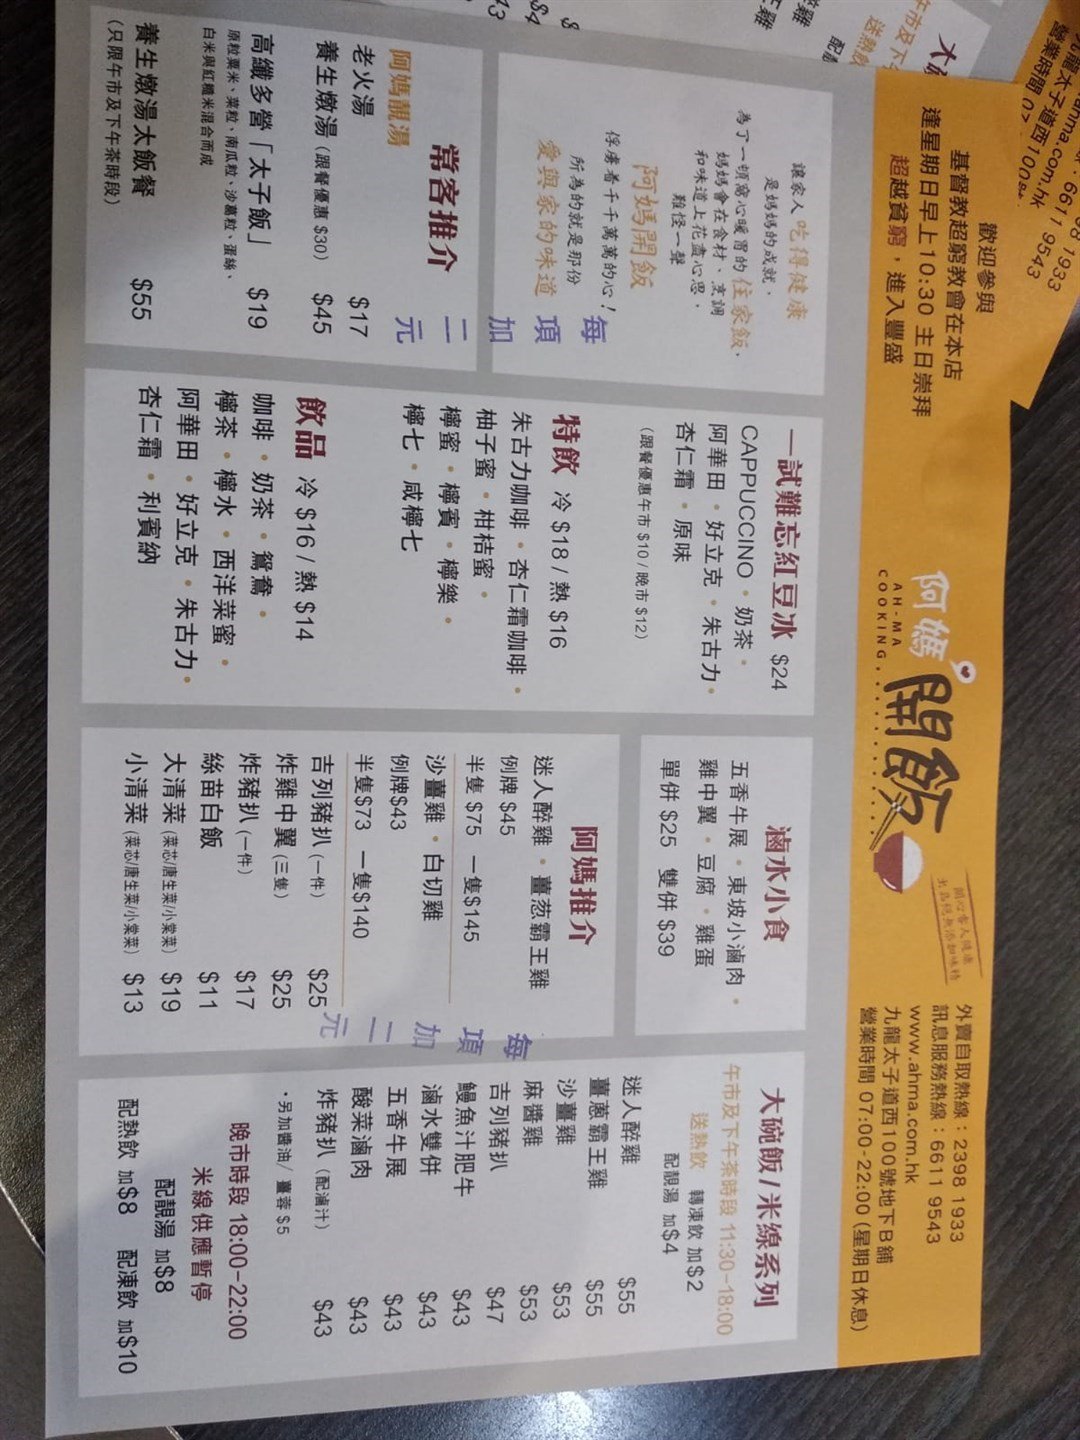 歡迎參與
基督教超窮教會在本店
逢星期日早上10:30 主日崇拜
超越貧窮，進入豐盛
阿媽開飯
AH-MA
COOKING
外賣自取熱線：2398 1933
訊息服務熱線：6611 9543
www.ahma.com.hk
九龍太子道西100號地下B舖
營業時間 07:00-22:00 (星期日休息)
讓家人吃得健康
是媽媽的成就，
為了一頓窩心暖胃的住家飯，
媽媽會在食材、烹調
和味道上花盡心思，
難怪一聲
阿媽開飯
俘虜着千千萬萬的心！
所為的就是那份
愛與家的味道
每項加二元
常客推介
阿媽靚湯
老火湯 $17
養生燉湯 (跟餐優惠 $30) $45
高纖多營「太子飯」 $19
原粒粟米、菜粒、南瓜粒、沙葛粒、蛋絲、
白米與紅糙米混合而成
養生燉湯太飯餐 $55
(只限午市及下午茶時段)
一試難忘紅豆冰 $24
CAPPUCCINO • 奶茶 •
阿華田 • 好立克 • 朱古力 •
杏仁霜 • 原味
(跟餐優惠午市 $10 / 晚市 $12)
特飲 冷 $18 / 熱 $16
朱古力咖啡 • 杏仁霜咖啡 •
柚子蜜 • 柑桔蜜 •
檸蜜 • 檸賓 • 檸樂 •
檸七 • 咸檸七
飲品 冷 $16 / 熱 $14
咖啡 • 奶茶 • 鴛鴦 •
檸茶 • 檸水 • 西洋菜蜜 •
阿華田 • 好立克 • 朱古力 •
杏仁霜 • 利賓納
滷水小食
五香牛展 • 東坡小滷肉 •
雞中翼 • 豆腐 • 雞蛋
單併 $25 雙併 $39
阿媽推介
迷人醉雞 • 薑葱霸王雞
例牌 $45
半隻 $75 一隻$145
沙薑雞 • 白切雞
例牌$43
半隻$73 一隻$140
吉列豬扒 (一件) $25
炸雞中翼 (三隻) $25
炸豬扒 (一件) $17
絲苗白飯 $11
大清菜 (菜芯/唐生菜/小棠菜) $19
小清菜 (菜芯/唐生菜/小棠菜) $13
每項加二元
大碗飯/米線系列
午市及下午茶時段 11:30-18:00
送熱飲 轉凍飲 加$2
配靚湯 加$4
迷人醉雞 $55
薑蔥霸王雞 $55
沙薑雞 $53
麻醬雞 $53
吉列豬扒 $47
鰻魚汁肥牛 $43
滷水雙併 $43
五香牛展 $43
酸菜滷肉 $43
炸豬扒 (配滷汁) $43
• 另加醬油/ 薑蓉 $5
晚市時段 18:00-22:00
米線供應暫停
配靚湯 加$8
配熱飲 加$8 配凍飲 加$10